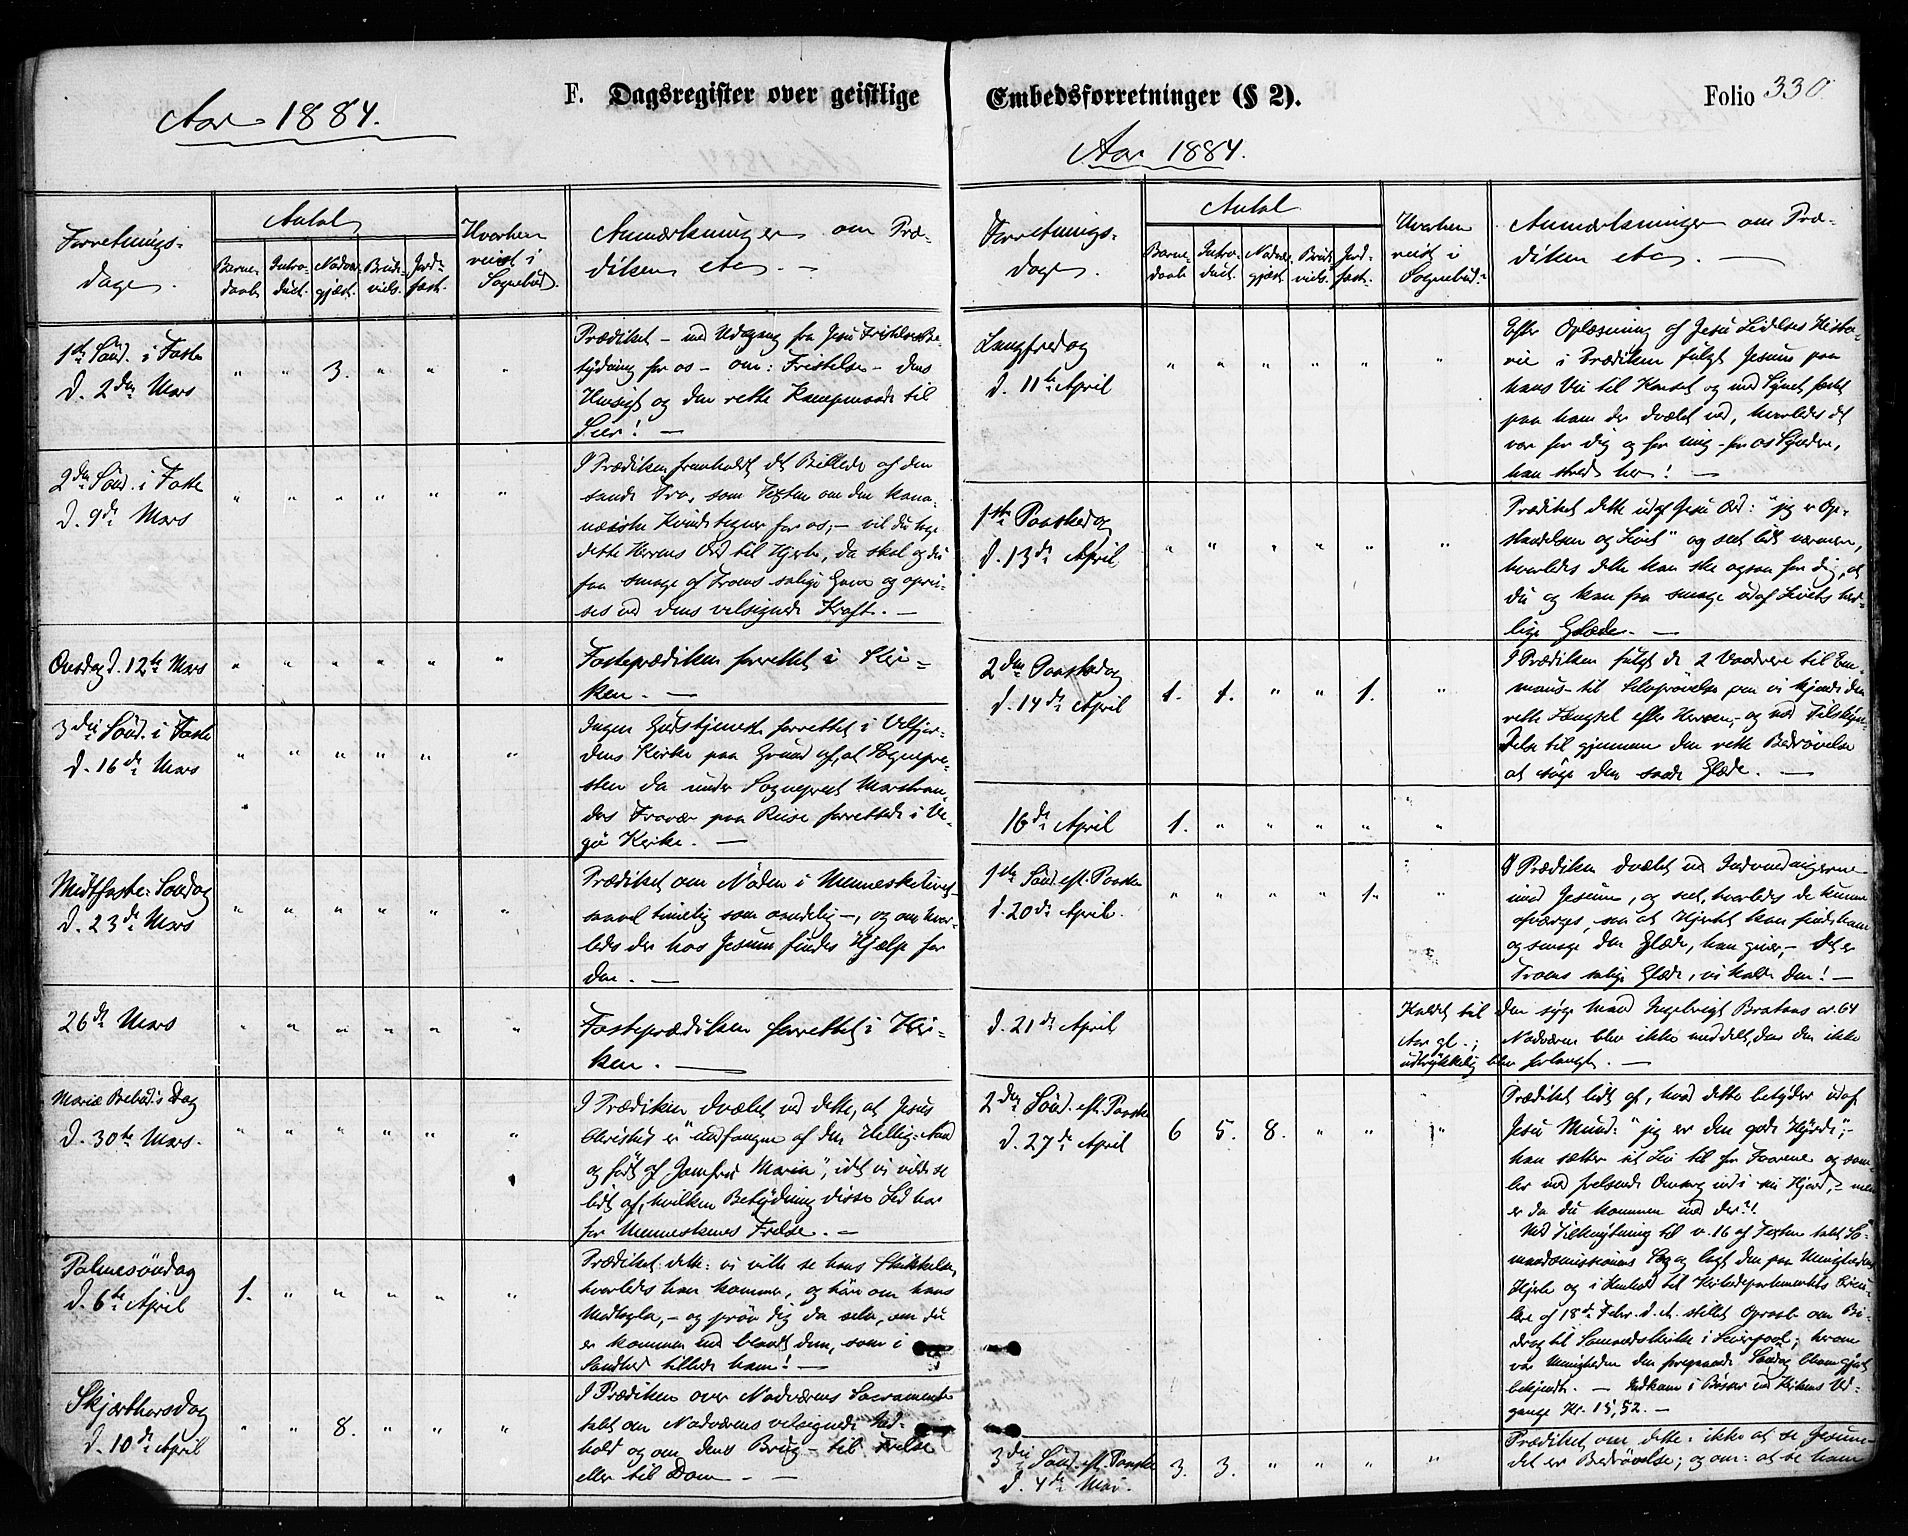 F. Dagsregister over geistlige
Aar 1884.
Forretnings-
dage.
Antal
Barne-
daab.
Intro-
duct.
Nadver-
gjæst.
Brude-
viels.
Jord-
fæst.
Hvorhen
reist i
Sognebud.
Anmærkninger om Præ-
diken etc. —
1ste Sönd. i Faste
d. 2den Mars
" " 3. " " "
Prædiket – med Udgang fra Jesu Fristelses Be-
tydning for os – om: Fristelse – dens
Hensigt og den rette Kampmaade til
Seier! —
2den Sönd. i Faste
d. 9de Mars
" " " " " "
I Prædiken fremholdt det Billede af den
sande Tro, som Texten om den kana-
næiske Kvinde tegner for os; – vil du tage
dette Herrens Ord til Hjerte, da skal og du
faa smage af Troens salige Gave og oprei-
ses ved dens velsignede Kraft. —
Onsdag d. 12te Mars
" " " " " "
Fasteprædiken forrettet i Kir-
ken. —
3die Sönd. i Faste
d. 16de Mars
" " " " " "
Ingen Gudstjeneste forrettet i Velfjor-
dens Kirke paa Grund af, at Sognepre-
sten da under Sogneprest Marstran-
des Fravær paa Reise forrettede i Ve-
gö Kirke. —
Midtfaste-Söndag
d. 23de Mars
" " " " " "
Prædiket om Nöden i Menneskelivet –
saavel timelig som aandelig –, og om hvor-
ledes der hos Jesum findes Hjælp for
den. —
26de Mars
" " " " " "
Fasteprædiken forrettet i Kir-
ken. —
Mariæ Bebud.s Dag
d. 30te Mars.
" " " " " "
I Prædiken dvælet ved dette, at Jesus
Christus er "undfangen af den Hellig-Aand
og födt af Jomfru Maria", idet vi vilde se
lidt af, hvilken Betydning disse Led har
for Menneskenes Frelse. —
Palmesöndag
d. 6te April
1. " " " " "
Prædiket dette: vi ville se hans Skikkelse,
hvorledes han kommer, og höre om hans
Modtagelse, – og pröv dig da selv, om du
er kommen ind blandt dem, som i
Sandhed tilbede ham! —
Skjærthorsdag
d. 10de April
" " 8. " " "
I Prædiken over Nadverens Sacramente
talt om Nadverens velsignede Ind-
hold og om dens Brug – til Frelse
eller til Dom. —
Embedsforretninger (§ 2).
Folio 330.
Aar 1884.
Forretnings-
dage.
Antal
Barne-
daab.
Intro-
duct.
Nadver-
gjæst.
Brude-
viels.
Jord-
fæst.
Hvorhen
reist i
Sognebud.
Anmærkninger om Præ-
diken etc. —
Langfredag
d. 11te April
" " " " " "
Efter Oplæsning af Jesu Lidelses Histo-
rie i Prædiken fulgt Jesum paa
hans Vei til Korset og med Synet fæstet
paa ham der dvælet ved, hvorledes det
var for dig og for mig – for os Syndere,
han stred her! —
1ste Paaskedag
d. 13de April
" " " " " "
Prædiket dette udaf Jesu Ord: "jeg er Op-
standelsen og Livet" og seet lidt nærmere,
hvorledes dette kan ske ogsaa for dig, at
du og kan faa smage udaf Livets her-
lige Glæde. —
2den Paaskedag
d. 14de April
1. 1. " " 1. "
I Prædiken fulgt de 2 Vandrere til Em-
maus – til Selvprövelse om vi kjende den
rette Længsel efter Herren, – og ved Tilskyn-
delse til gjennem den rette Bedrövelse
at söge den sande Glæde. —
16de April
1. " " " " "
1ste Sönd. eft. Paaske
d. 20de April.
" " " " 1. "
I Prædiken dvælet ved Indvendingerne
mod Jesum, og seet, hvorledes de kunne
afværges, saa at Hjertet kan finde ham
og smage den Glæde, han giver, – det er
Troens salige Glæde, vi kalde den! —
d. 21de April
Kaldet til den syge Mand Ingebrigt Brataas ca. 64
Aar gl.; Nadveren blev ikke meddelt, da den ikke
udtrykkelig blev forlangt. —
2den Sönd. eft. Paaske
d. 27de April
6 5. 8. " " "
Prædiket lidt af, hvad dette betyder udaf
Jesu Mund: "jeg er den gode Hyrde"; –
han sætter sit Liv til for Faarene og sam-
ler ved frelsende Omsorg ind i sin Hjord, – men
er da du kommen ind der?!
Med Tilknytning til v. 16 af Texten talt Sö-
mandsmissionens Sag og lagt den paa Menighedens
Hjerte og i Henhold til Kirkedepartementets Circu-
lære af 18de Febr. d. A. stillet Opraab om Bi-
drag til Sömandskirke i Liverpool; hvorom
var Menigheden den foregaaende Söndag bleven gjort
bekjendt. — Indkom i Bösser ved Kirkens Ud-
gange Kr. 15,52. —
3die Sönd. eft. Paaske
d. 4de Mai.
3. 3. " " " "
Prædiket om dette: ikke at se Jesum –
det er Bedrövelse; og om: at se ham